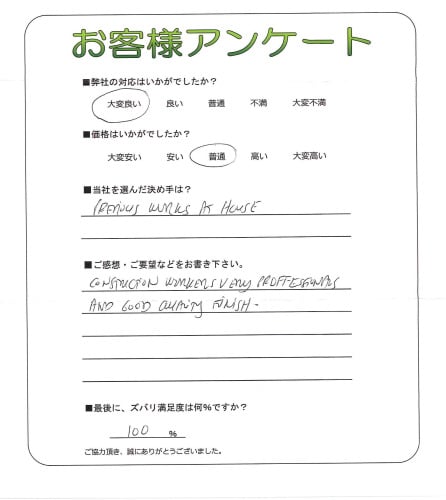 お客様アンケート
■弊社の対応はいかがでしたか?
大変良い 良い 普通 不満 大変不満
■価格はいかがでしたか?
大変安い 安い 普通 高い 大変高い
■当社を選んだ決め手は?
PREVIOUS WORKS AT HOUSE
■ご感想・ご要望などをお書き下さい。
CONSTRUCTION WORKERS VERY PROFFESSIONALS
AND GOOD QUALITY FINISH -
■最後に、ズバリ満足度は何%ですか?
100 %
ご協力頂き、誠にありがとうございました。